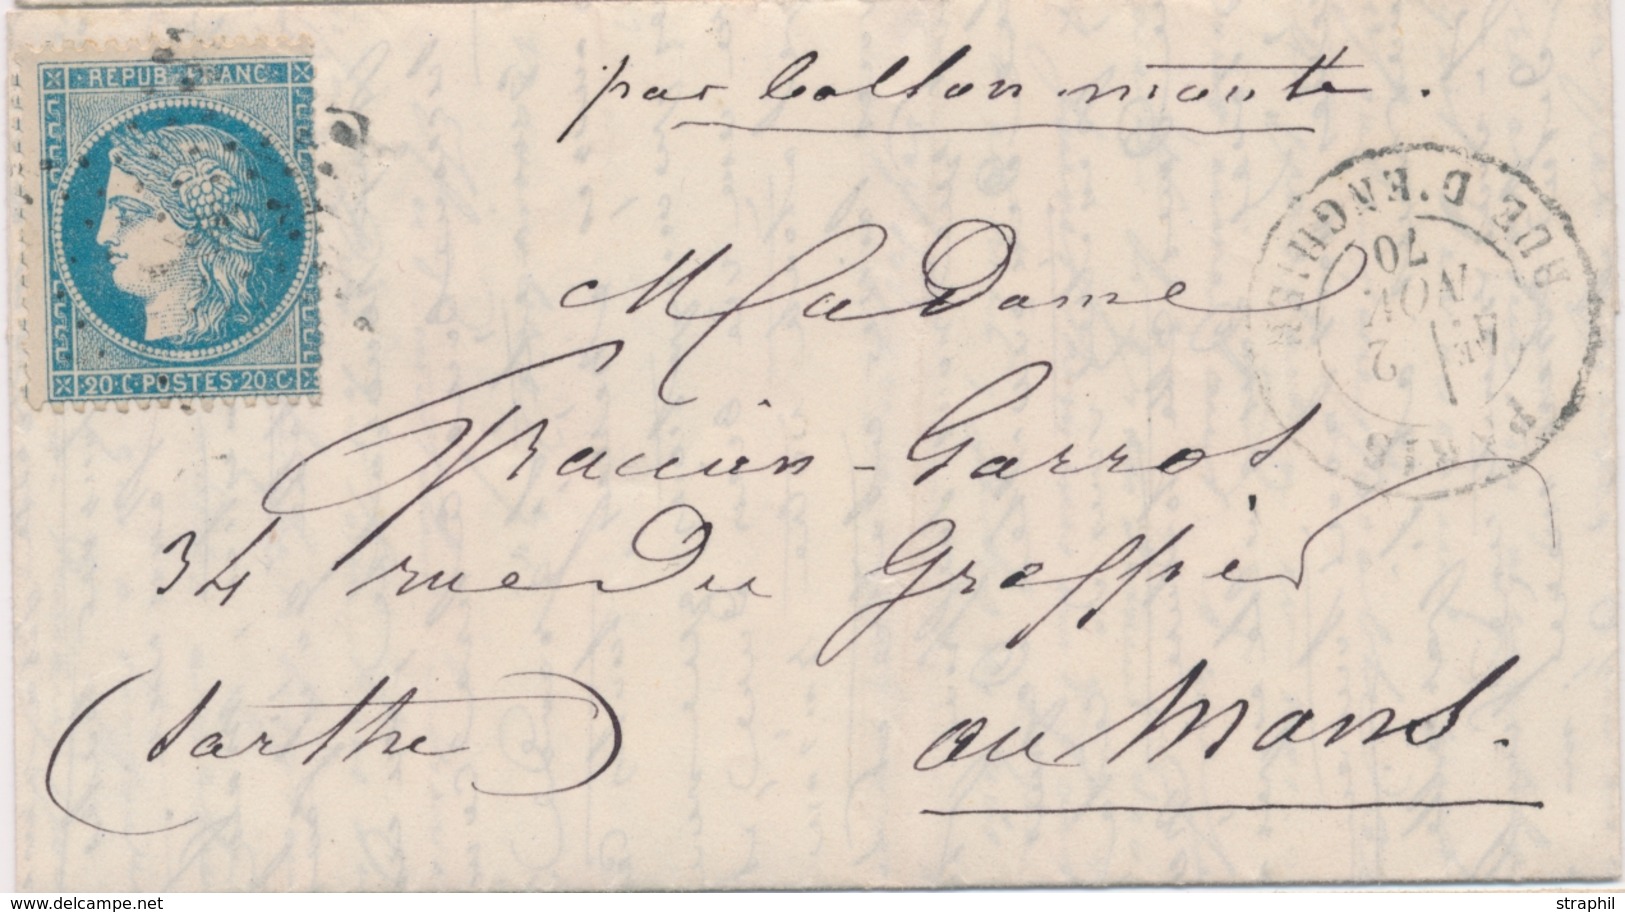 REPUB. FRANC.
20.C.POSTES.20.C.
par ballon monté.
PARIS RUE D'ENGHIEN
4E
2
NOV.
70
Madame
Garros
34 rue du Greffier
au Mans.
(Sarthe)
straphil